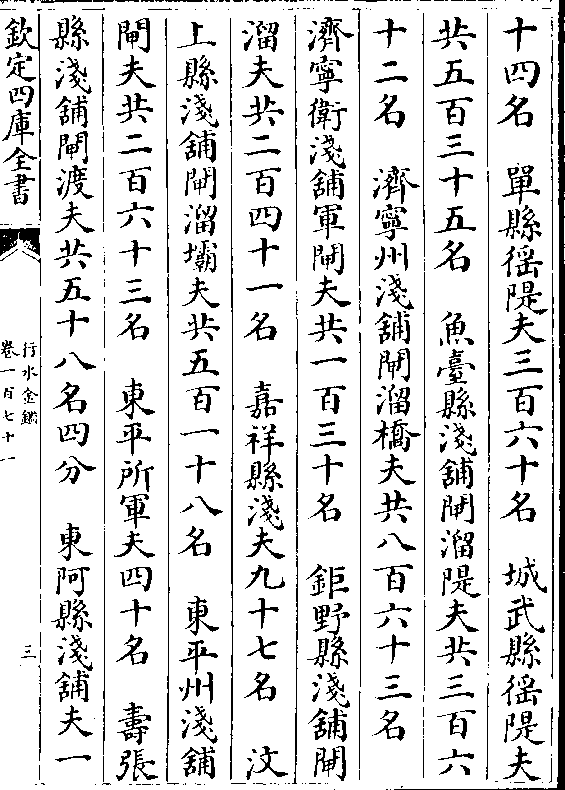 十四名　單縣徭隄夫三百六十名　城武縣徭隄夫
共五百三十五名　魚臺縣淺舖閘溜隄夫共三百六
十二名　濟寧州淺舖閘溜橋夫共八百六十三名
濟寧衛淺舖軍閘夫共一百三十名　鉅野縣淺舖閘
溜夫共二百四十一名　嘉祥縣淺夫九十七名　汶
上縣淺舖閘溜壩夫共五百一十八名　東平州淺舖
閘夫共二百六十三名　東平所軍夫四十名　壽張
縣淺舖閘渡夫共五十八名四分　東阿縣淺舖夫一
欽定四庫全書
行水金鑑
卷一百七十一
三